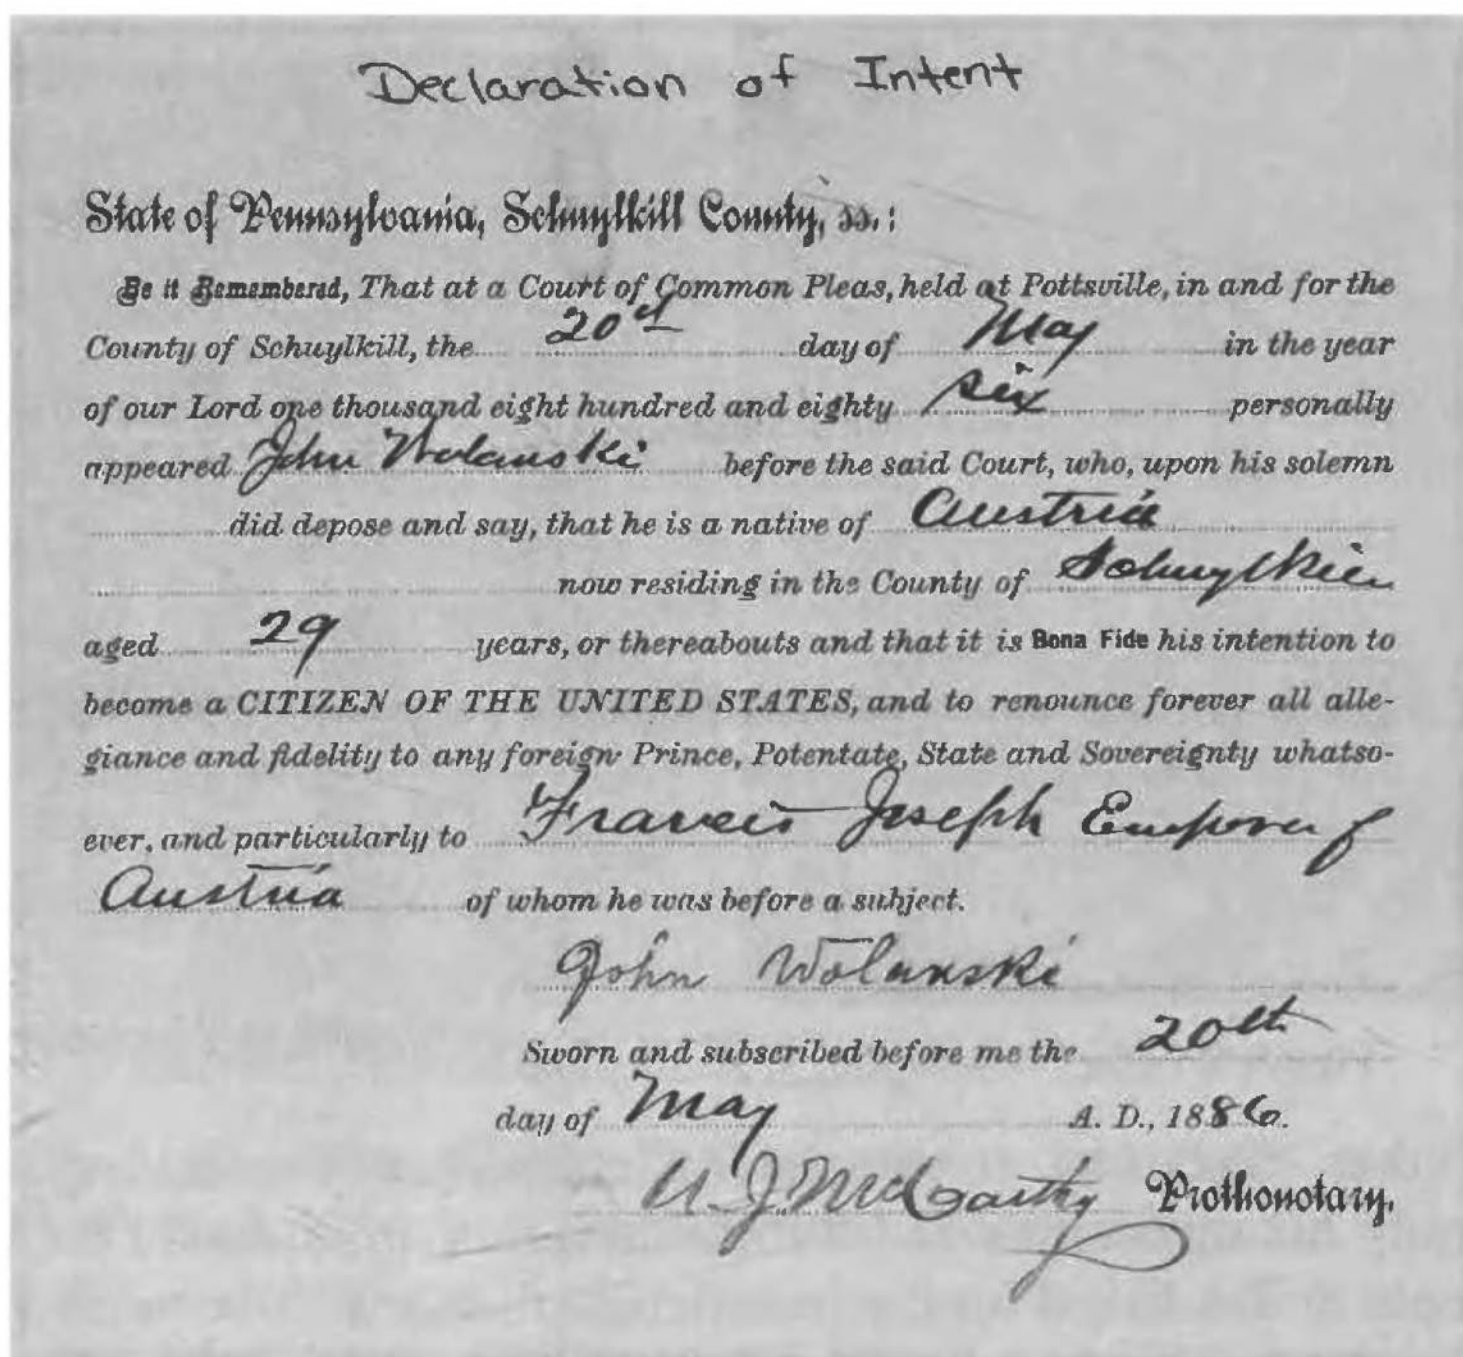 Declaration of Intent
State of Pennsylvania, Schuylkill County, ss.:
Be it Remembered, That at a Court of Common Pleas, held at Pottsville, in and for the
County of Schuylkill, the 20th day of May in the year
of our Lord one thousand eight hundred and eighty six personally
appeared John Wolanski before the said Court, who, upon his solemn
did depose and say, that he is a native of Austria
now residing in the County of Schuylkill
aged 29 years, or thereabouts and that it is Bona Fide his intention to
become a CITIZEN OF THE UNITED STATES, and to renounce forever all alle-
giance and fidelity to any foreign Prince, Potentate, State and Sovereignty whatso-
ever, and particularly to Francis Joseph Emperor of
Austria of whom he was before a subject.
John Wolanski
Sworn and subscribed before me the 20th
day of May A. D., 1886.
J. McCarthy Prothonotary.